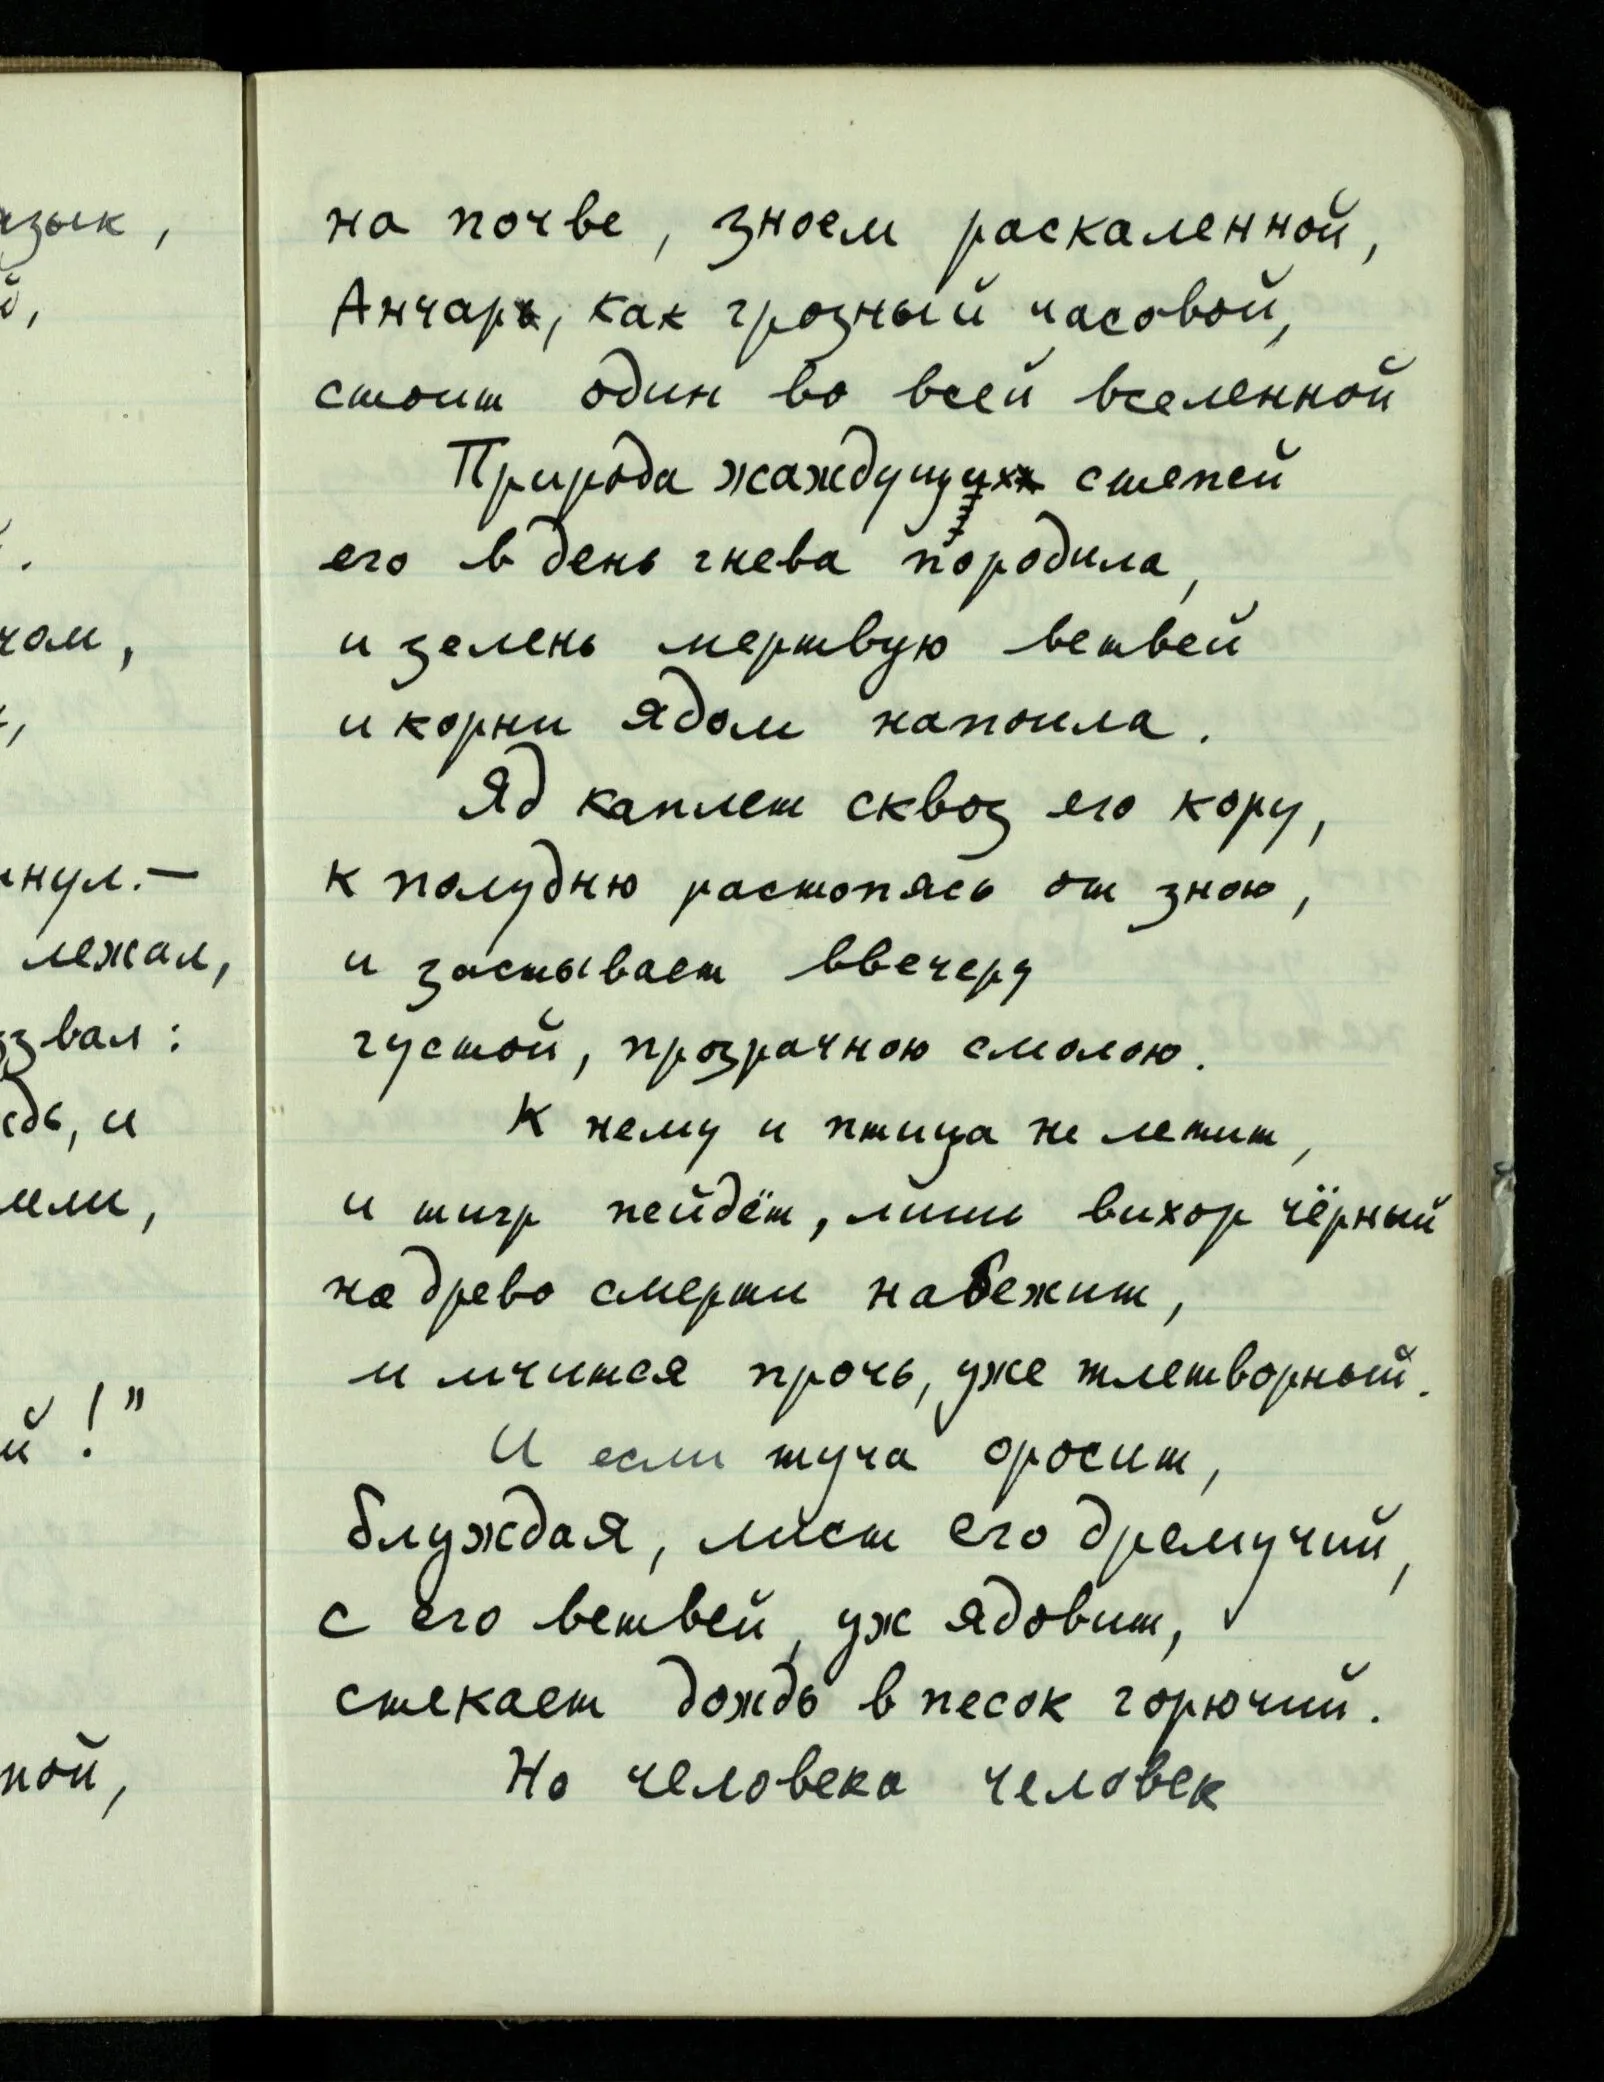 язык,
й,
.
чом,
,
нул.—
лежал,
звал:
ждь, и
мли,
й!"
пой,
на почве, зноем раскаленной,
Анчар, как грозный часовой,
стоит один во всей вселенной
Природа жаждущих степей
его в день гнева породила,
и зелень мертвую ветвей
и корни ядом напоила.
Яд каплет сквоз его кору,
к полудню растопясь от зною,
и застывает ввечеру
густой, прозрачною смолою.
К нему и птица не летит,
и тигр нейдёт, лишь вихор чёрный
на древо смерти набежит,
и мчится прочь, уже тлетворный.
И если туча оросит,
блуждая, лист его дремучий,
с его ветвей, уж ядовит,
стекает дождь в песок горючий.
Но человека человек